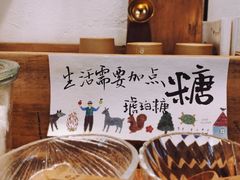 生活需要加点糖
琥珀糖